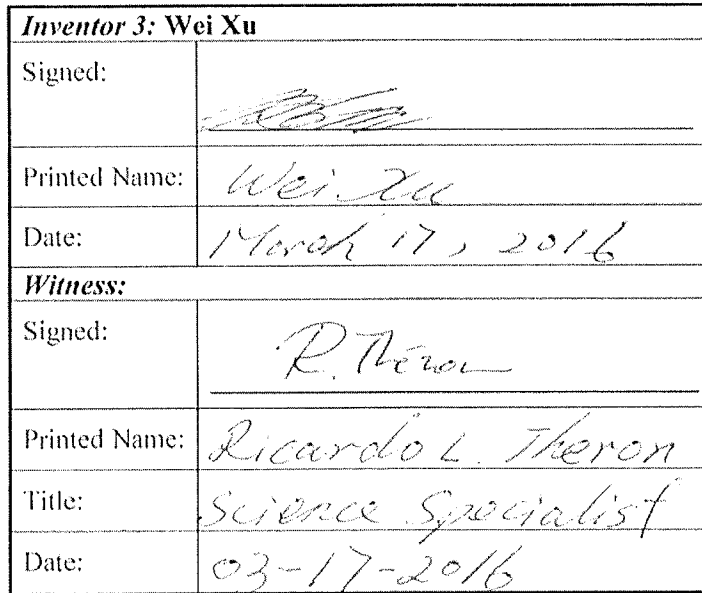 Inventor 3: Wei Xu
Signed:
Printed Name: Wei Xu
Date: March 17, 2016
Witness:
Signed: R. Théron
Printed Name: Ricardo L. Theron
Title: Science Specialist
Date: 03-17-2016